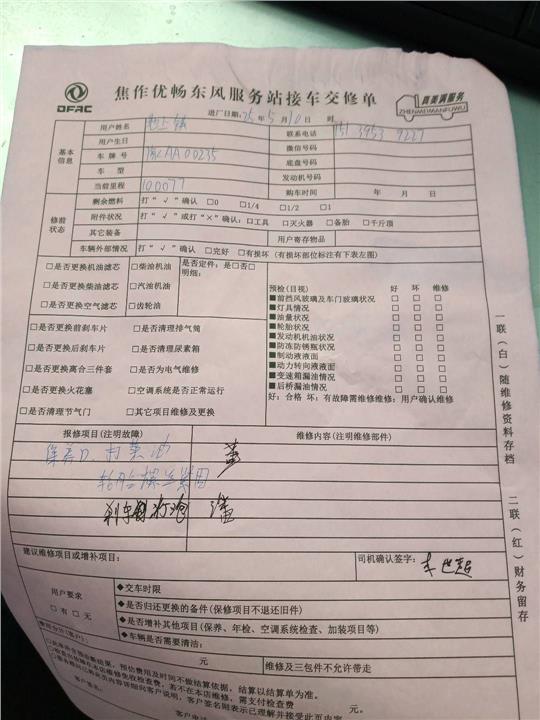 DFAC
焦作优畅东风服务站接车交修单
真美满服务
ZHENMEIMANFUWU
进厂日期: 25 年 5 月 10 日 时
基本信息
用户姓名
联系电话 151 3953 9227
用户生日
微信号码
车牌号 豫AA00235
底盘号码
车型
发动机号码
当前里程 100077
购车时间 年 月 日
修前状态
剩余燃料 打“√”确认 □0 □1/4 □1/2 □1
附件状况 打“√”或打“×”确认: □工具 □灭火器 □备胎 □千斤顶
其它装备
用户寄存物品
车辆外部情况 打“√”确认 □完好 □有损坏 (有损坏部位标注有下表左图)
□是否更换机油滤芯 □柴油机油 是否定件: 是□否□
明细:
□是否更换柴油滤芯 □汽油机油
□是否更换空气滤芯 □齿轮油
□是否更换前刹车片 □是否清理排气筒
□是否更换后刹车片 □是否清理尿素箱
□是否更换离合三件套 □是否为电气维修
□是否更换火花塞 □空调系统是否正常运行
□是否清理节气门 □其它项目维修及更换
预检(目视) 好 坏 维修
■前挡风玻璃及车门玻璃状况 □ □ □
■灯具情况 □ □ □
■油量状况 □ □ □
■轮胎状况 □ □ □
■发动机机油状况 □ □ □
■防冻防锈瓶状况 □ □ □
■制动液液面 □ □ □
■动力转向液液面 □ □ □
■变速箱漏油情况 □ □ □
■后桥漏油情况 □ □ □
好: 合格 坏: 有故障需维修维修: 用户确认维修
一联(白)随维修资料存档
二联(红)财务留存
报修项目(注明故障)
维修内容(注明维修部件)
保养D、打黄油
轮胎螺丝紧固
建议维修项目或增补项目:
司机确认签字:
用户要求
□有 □无
◆交车时限
◆是否归还更换的备件(保修项目不退还旧件)
◆是否增补其他项目(保养、年检、空调系统检查、加装项目等)
◆车辆是否需要清洁:
费用合计(客户):
元
维修及三包件不允许带走
预估费用及时间不做结算依据, 结算以结算单为准。
若不在本店维修, 需支付检查费 元。
客户签名附表示已理解并接受此页内容
客户签名: